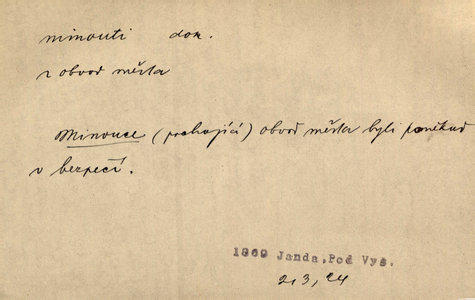 minouti dok.
z obvod města
Minouce (prchající) obvod města byli poněkud
v bezpečí.
1869 Janda, Pod Vyš.
2, 3, 24